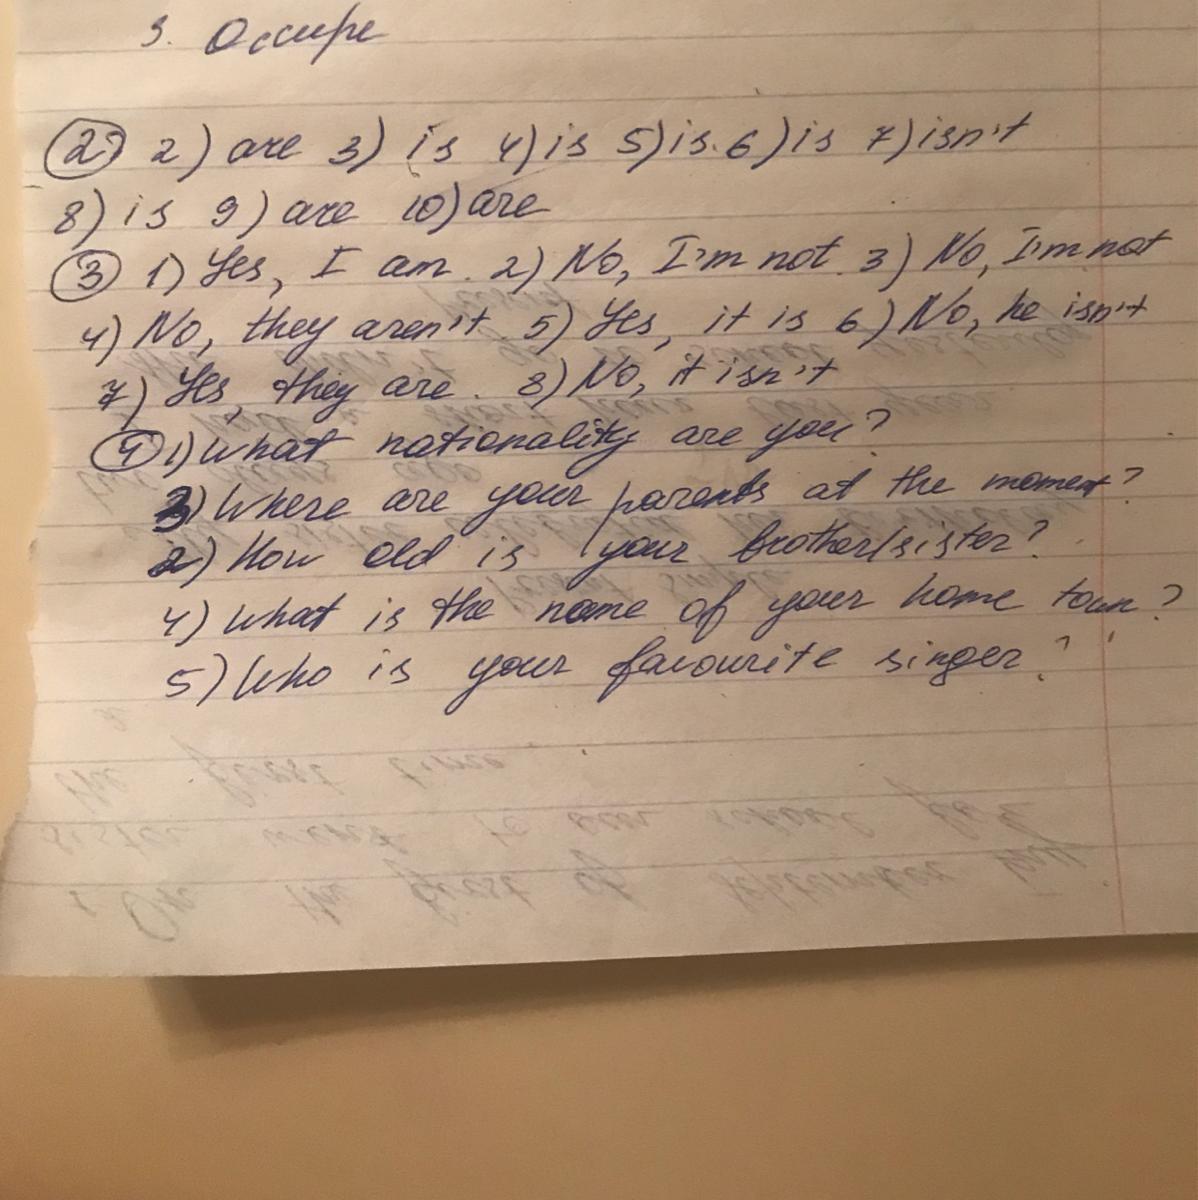 3. Occupe
② 2) are 3) is 4) is 5) is. 6) is 7) isn't
8) is 9) are 10) are
③ 1) Yes, I am. 2) No, I'm not. 3) No, I'm not
4) No, they aren't 5) Yes, it is 6) No, he isn't
7) Yes, they are. 8) No, it isn't
④ 1) What nationality are you?
3) Where are your parents at the moment?
2) How old is your brother/sister?
4) What is the name of your home town?
5) Who is your favourite singer?